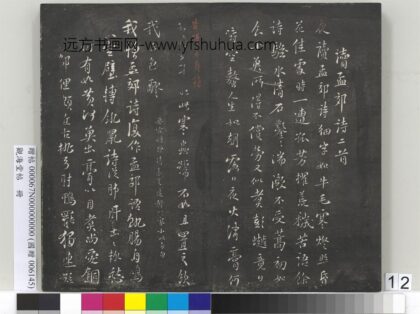 远方书画网 www.yfshuhua.com
讀孟郊詩二首
夜讀孟郊詩細字如牛毛寒燈照昏
花佳處時一遭孤芳擢荒穢苦語餘
詩騷水清石鑿鑿湍激不受篙初如
食小魚所得不償勞又似煮彭越竟日
持空螯人生如朝露日夜火消膏何
耳聽此寒蟲號不如且置之飲
我玉色醪
我憎孟郊詩復作孟郊語飢腸自鳴
喚空壁轉飢鼠詩從肺腑出出輒愁
肺腑有如黃河魚出膏以自煮尚愛銅
斗歌鄙俚頗近古桃弓射鴨罷獨速短
贈帖 000067N000000000 (國贈 006145)
冊
12